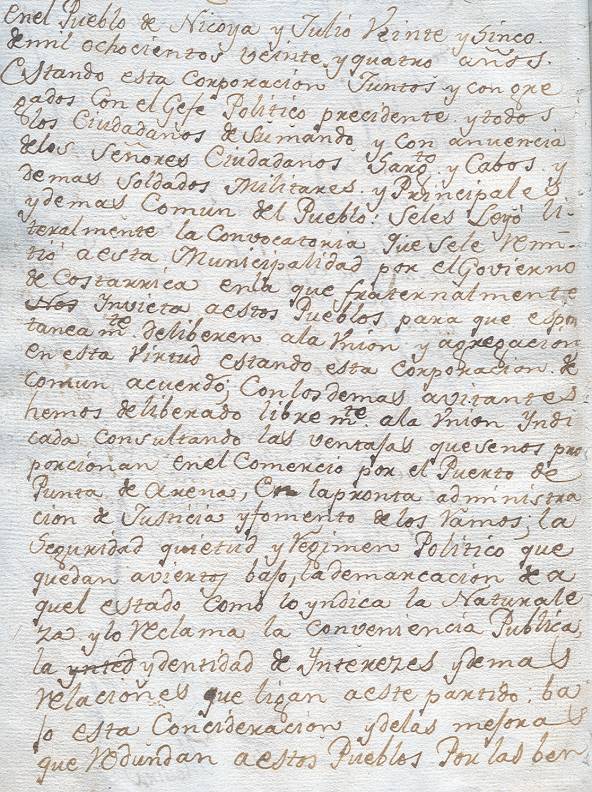 enel Pueblo de Nicoya y Julio Veinte y Sinco.
demil ochocientos veinte y quatro años.
Estando esta Corporacion Juntos y congre
gados Con el Gefe Politico precidente. y todos
los Ciudadanos de Su mando y con anuencia
delos Señores Ciudadanos Sargto. y Cabos. y
demas Soldados Militares. y Principales
ydemas Comun del Pueblo. Seles Leyó li-
teralmente la Convocatoria que Sele Remi-
tió aesta Municipalidad por el Govierno
de Costarrica enla que fraternalmente
Nos Invieta aestos Pueblos para que espon
taneamte. deliberen ala Vnion y agregacion
en esta Virtud estando esta corporacion. de
comun acuerdo; Conlosdemas avitantes
hemos deliberado libremte. ala Vnion Yndi
cada Consultando las ventajas quesenos pro
porcionan enel Comercio por el Puerto de
Punta de Arena, En lapronta administra
cion de Justicia yfomento de los Ramos; la
Seguridad quietud y Regimen Politico que
quedan aviertos bajo, la demarcacion de a
quel estado Como lo yndica la Naturale
za y lo Reclama la Conveniencia Publica,
la ynted ydentidad de Interezes ydemas
relaciones que ligan aeste partido: ba
jo esta Concideracion ydelas mejoras
que Redundan aestos Pueblos Por las ben